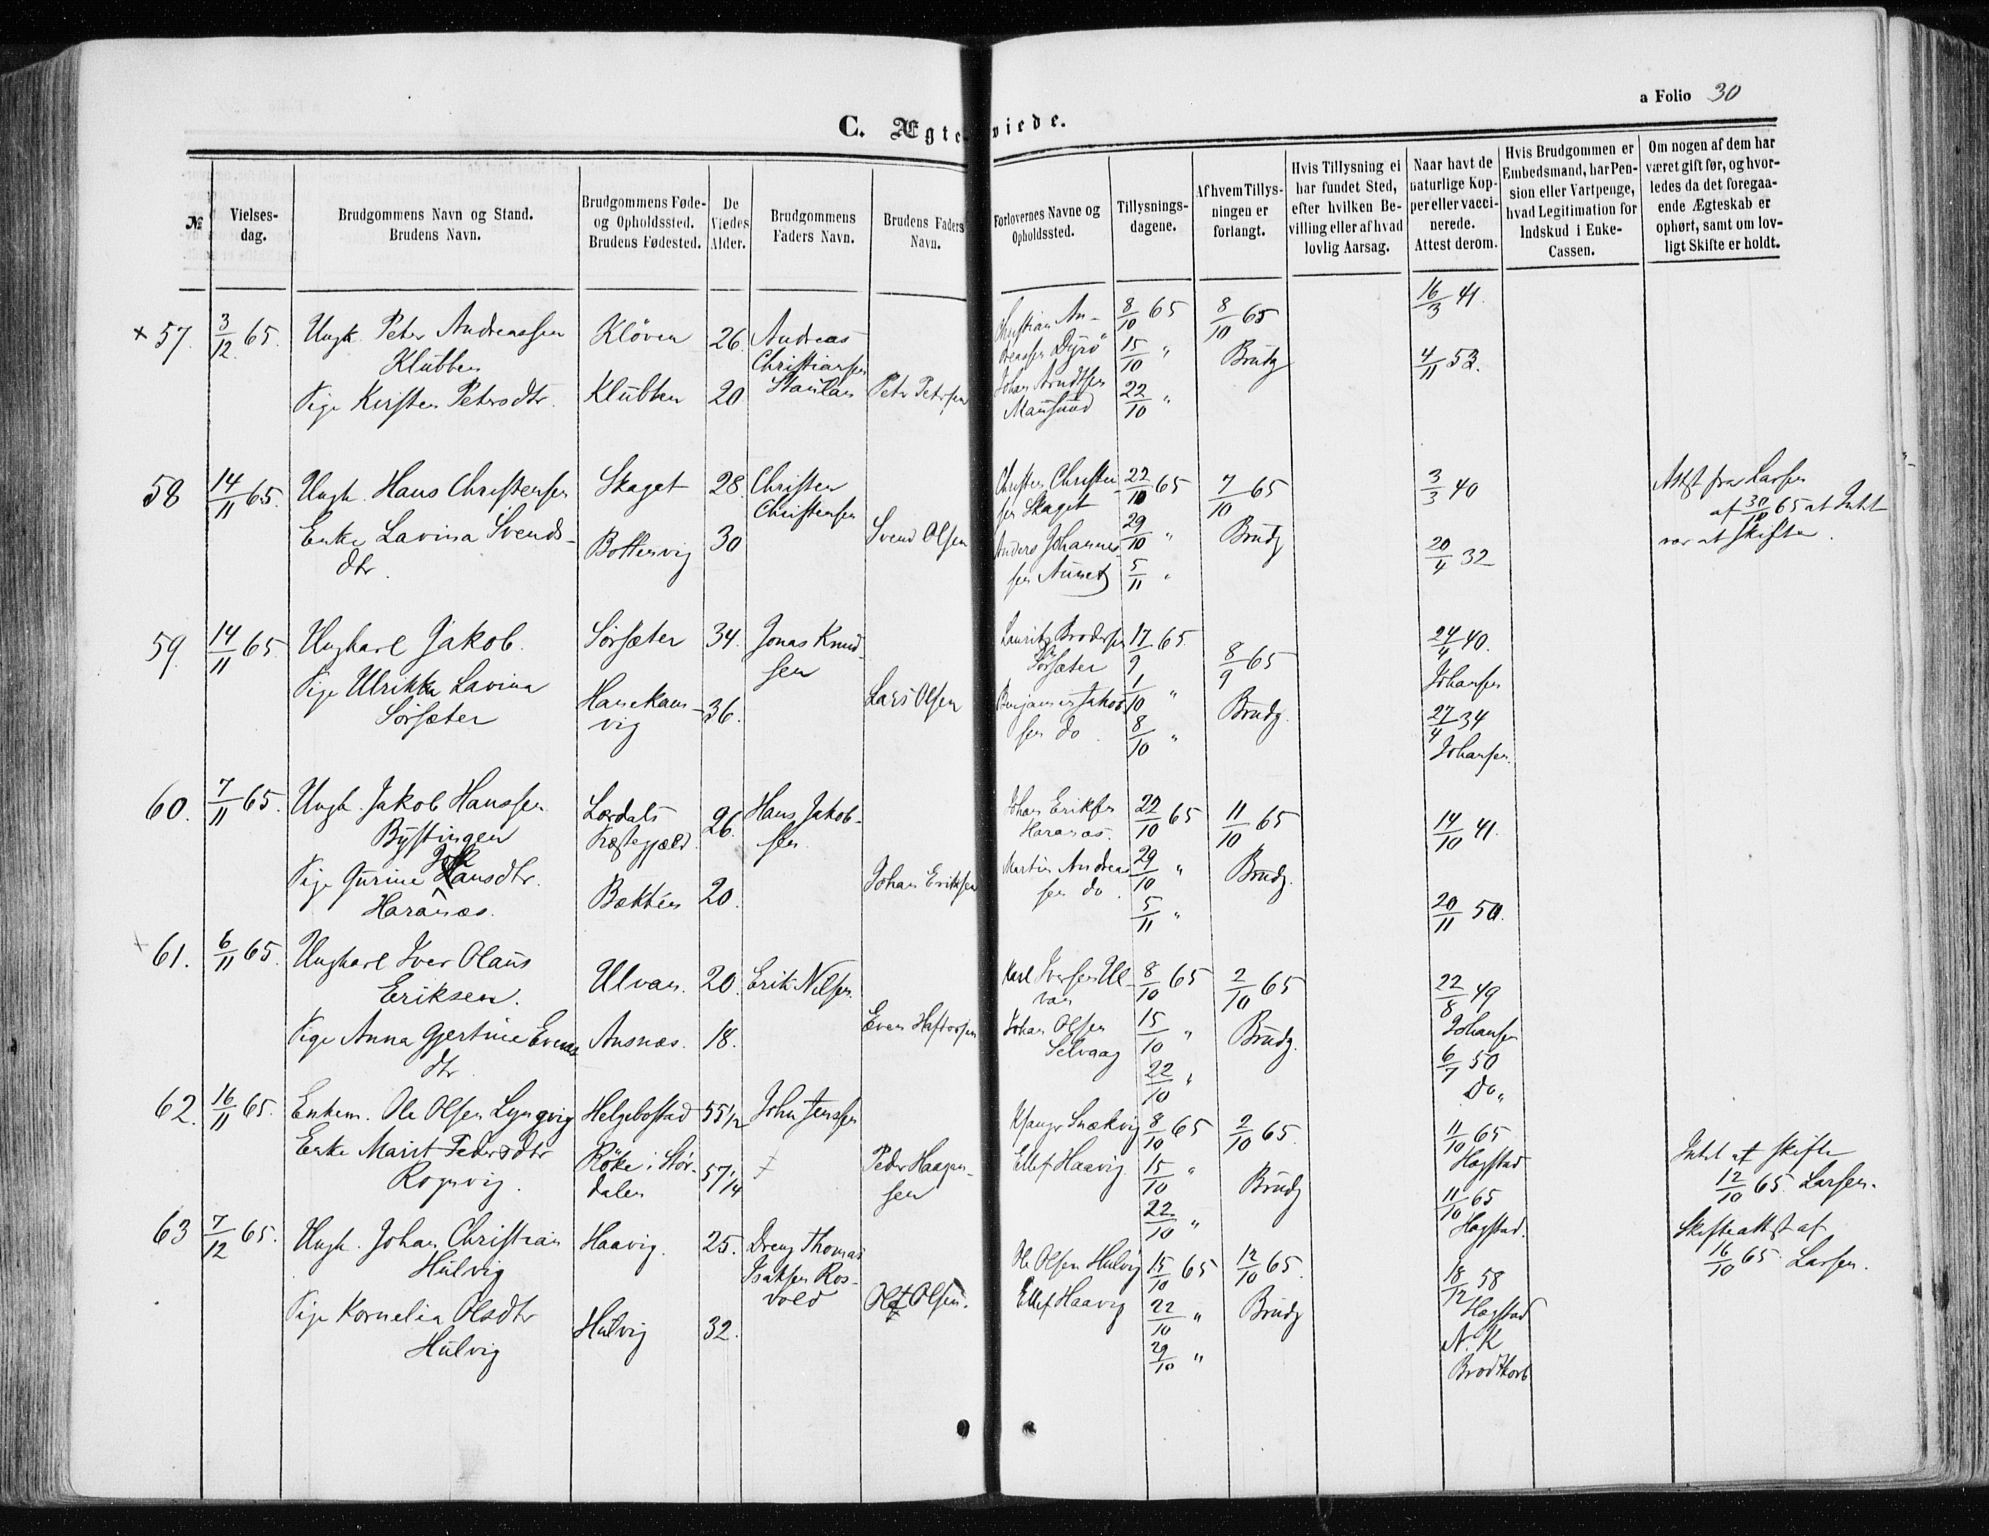 a Folio 30
C. Ægteviede.
№
Vielses-
dag.
Brudgommens Navn og Stand.
Brudens Navn.
Brudgommens Føde-
og Opholdssted.
Brudens Fødested.
De
Viedes
Alder.
Brudgommens
Faders Navn.
Brudens Faders
Navn.
Forlovernes Navne og
Opholdssted.
Tillysnings-
dagene.
Af hvem Tillys-
ningen er
forlangt.
Hvis Tillysning ei
har fundet Sted,
efter hvilken Be-
villing eller af hvad
lovlig Aarsag.
Naar havt de
naturlige Kop-
per eller vacci-
nerede.
Attest derom.
Hvis Brudgommen er
Embedsmand, har Pen-
sion eller Vartpenge,
hvad Legitimation for
Indskud i Enke-
Cassen.
Om nogen af dem har
været gift før, og hvor-
ledes da det foregaa-
ende Ægteskab er
ophørt, samt om lov-
ligt Skifte er holdt.
+ 57. 3/12 65. Ungk. Peter Andreassen Kløven 26. Andreas
Klubben Christiansen
Pige Kirsten Petersdtr. Klubben 20 Peter Petersen
Christian An-
dreassen Dyrö
Johan Arndtsen
Mausund
8/10 65
15/10 "
22/10 "
8/10 65
Brudg
16/3 41.
4/11 53.
58 14/11 65. Ungk. Hans Christensen Skaget 28. Christen
Christensen
Enke Lavina Svends- Bottenvig 30 Svend Olsen
dtr.
Christen Christen-
sen Skaget
Anders Johannes-
sen Aunet
22/10 65
29/10 "
5/11 "
7/10 65
Brudg
3/3 40
20/4 32
Attest fra Larsen
af 30/10 65 at Intet
var at skifte.
59. 14/11 65. Ungkarl Jakob. Sörsæter 34. Jonas Knud-
sen
Pige Ulrikka Lavina
Sörsæter 36. Lars Olsen
Lauritz Brodersen
Sörsæter
Benjamin Jakob-
sen do.
17/9 65.
1/10 "
8/10 "
8/9 65
Brudg.
24/4 40.
Johansen
27/4 34
Johansen.
60. 7/11 65. Ungk. Jakob Hanssen Lærdals 26. Hans Jakob-
Bystingen Præstegjæld. sen
Pige Gurine Johansdtr. Bekken 20. Johan Eriksen
Haranæs.
Johan Eriksen
Haranæs.
Martin Andreas-
sen do.
22/10 65
29/10 "
5/11 "
11/10 65
Brudg.
14/10 41.
20/11 50.
+ 61. 6/11 65. Ungkarl Iver Olaus Ulvan. 20. Erik Nilsen.
Eriksen.
Pige Anna Gjertine Evens Ansnæs. 18. Even Haftorsen
dtr.
Karl Iversen Ul-
van
Johan Olsen
Selvaag
8/10 65
15/10 "
22/10 "
2/10 65
Brudg.
22/8 49
Johansen
6/7 50
Do "
62. 16/11 65. Enkem. Ole Olsen Lyngvig Helgebostad 55 1/2 John Jenssen
Enke Marit Pedersdtr Röke i Stör- 57 1/4 Peder Haagen-
Rognvig. dalen sen
Snækvig
Ellef Haavig
8/10 65
15/10 "
22/10 "
2/10 65.
Brudg
11/10 65
Hagstad
11/10 65
Hagstad.
Intet at skifte
12/10 65. Larsen.
Skifteattest af
16/10 65. Larsen.
63 7/12 65. Ungk. Johan Christian Haavig. 25. Dreng Thomas
Hulvig Isaksen Ros-
vold
Pige Kornelia Olsdtr Hulvig 32. Ole Olsen.
Hulvig
Ole Olsen Hulvig
Ellef Haavig
15/10 65
22/10 "
29/10 "
12/10 65.
Brudg
18/12 58
Hagstad
N. K
Brodtkorb